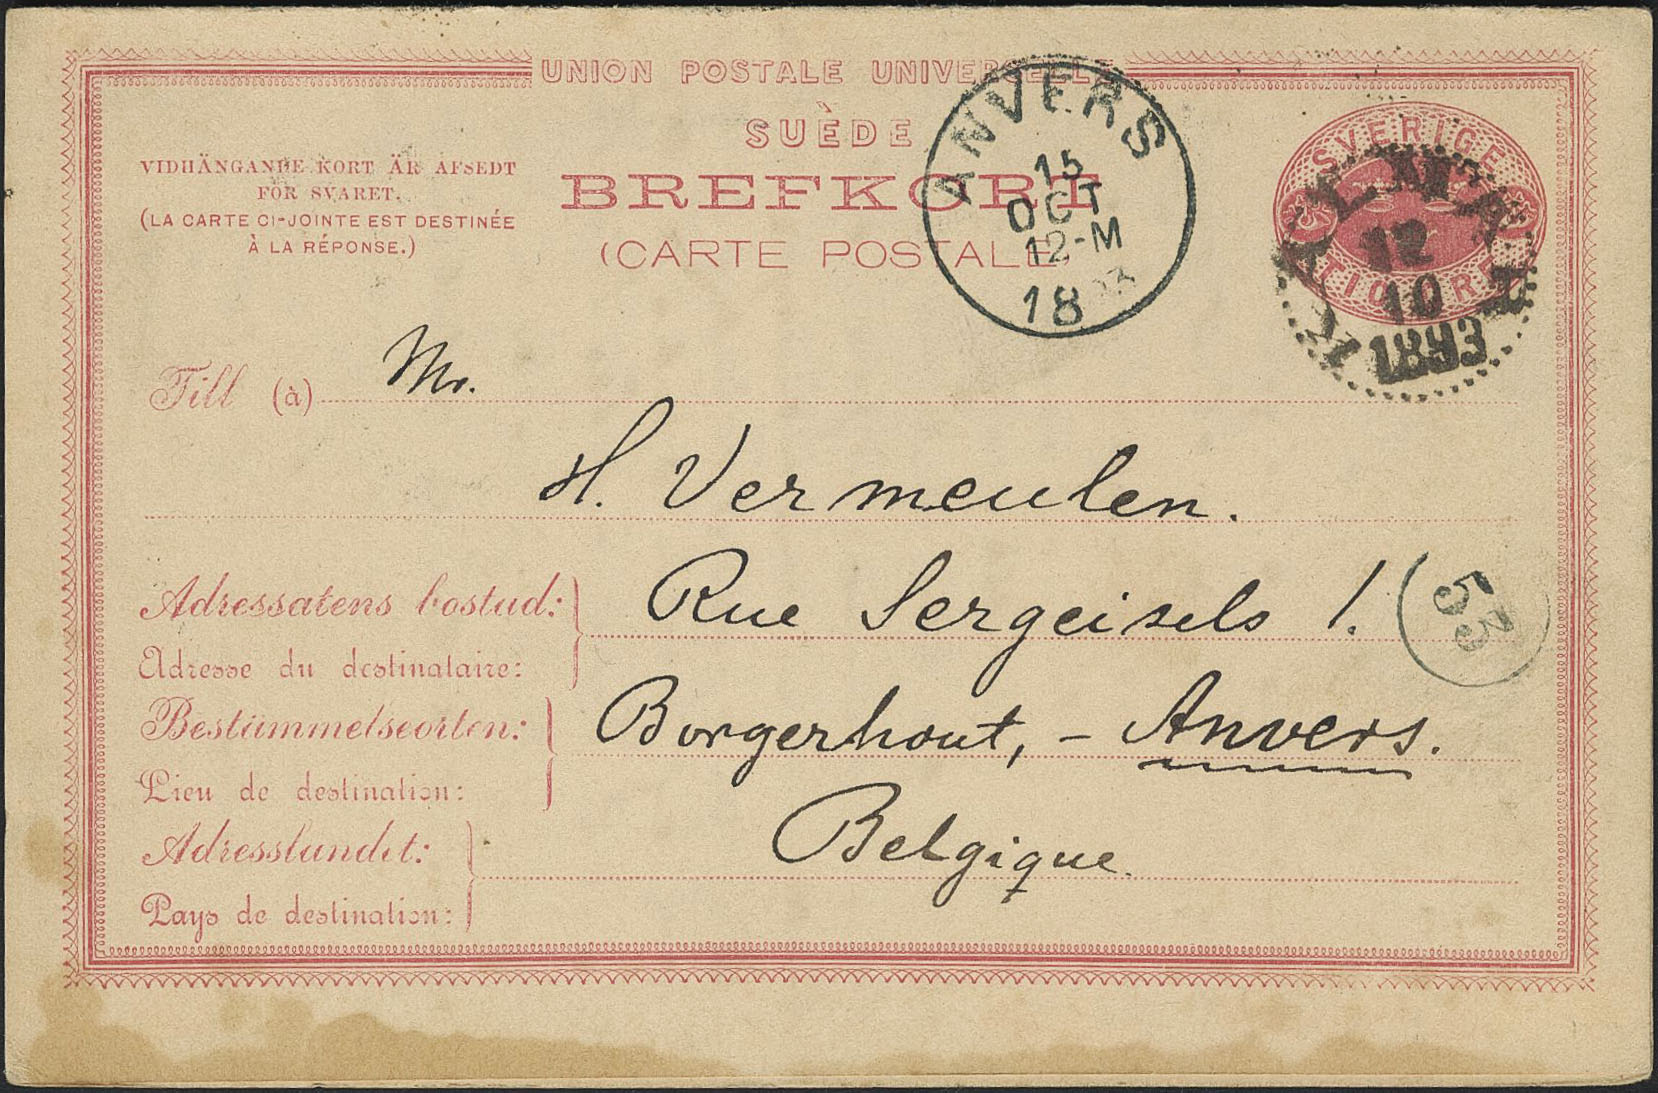 UNION POSTALE UNIVERSELLE
SUÈDE
BREFKORT
(CARTE POSTALE)
VIDHÄNGANDE KORT ÄR AFSEDT
FÖR SVARET.
(LA CARTE CI-JOINTE EST DESTINÉE
À LA RÉPONSE.)
ANVERS
15
OCT
12-M
18 93
SVERIGE
TIO ÖRE
KALMAR
12
10
1893
Till (à) Mr.
H. Vermeulen.
Adressatens bostad: Rue Sergeisels 1.
Adresse du destinataire:
53
Bestämmelseorten: Borgerhout, - Anvers.
Lieu de destination:
Adresslandet: Belgique.
Pays de destination: